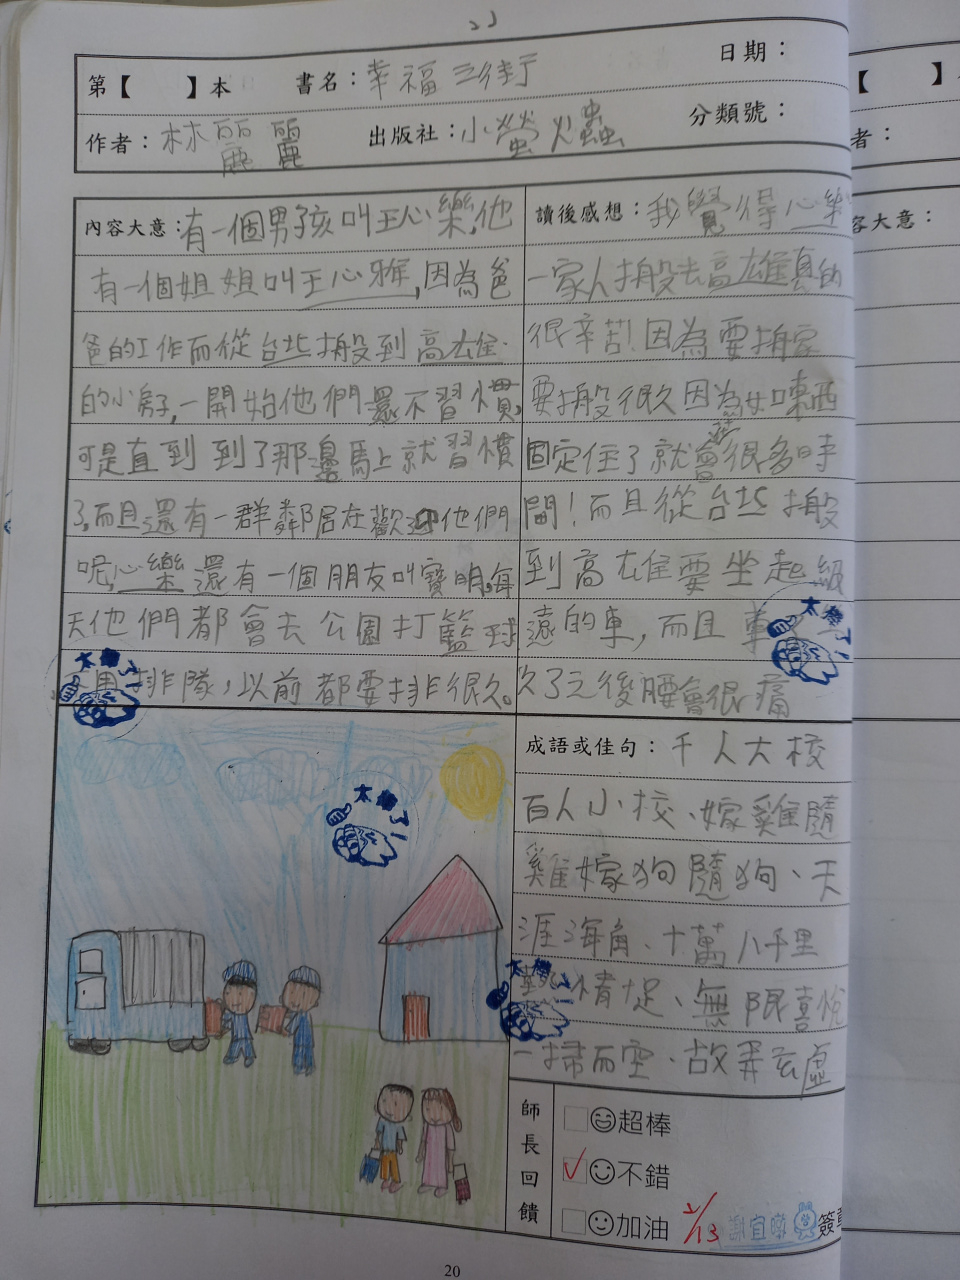 第【 】本 書名：幸福三街 日期：
作者：林麗麗 出版社：小螢火蟲 分類號：
內容大意：有一個男孩叫王心樂,他
有一個姐姐叫王心雅,因為爸
爸的工作而從台北搬到高雄
的小房子,一開始他們還不習慣,
可是直到到了那邊馬上就習慣
了,而且還有一群鄰居在歡迎他們
呢,心樂還有一個朋友叫寶明,每
天他們都會去公園打籃球
排隊,以前都要排很久。
讀後感想：我覺得心樂
一家人搬去高雄真的
很辛苦!因為要搬家
要搬很久因為東西
固定住了就會很多時
間!而且從台北搬
到高雄要坐超級
遠的車,而且
久了之後腰會很痛
成語或佳句：千人大校
百人小校、嫁雞隨
雞嫁狗隨狗、天
涯海角、十萬八千里
情足、無限喜悅
一掃而空、故弄玄虛
太棒了!
太棒了!
太棒了!
太棒了!
師長回饋
超棒
✓不錯
加油
2/13
簽章
20
【 】
者：
容大意：